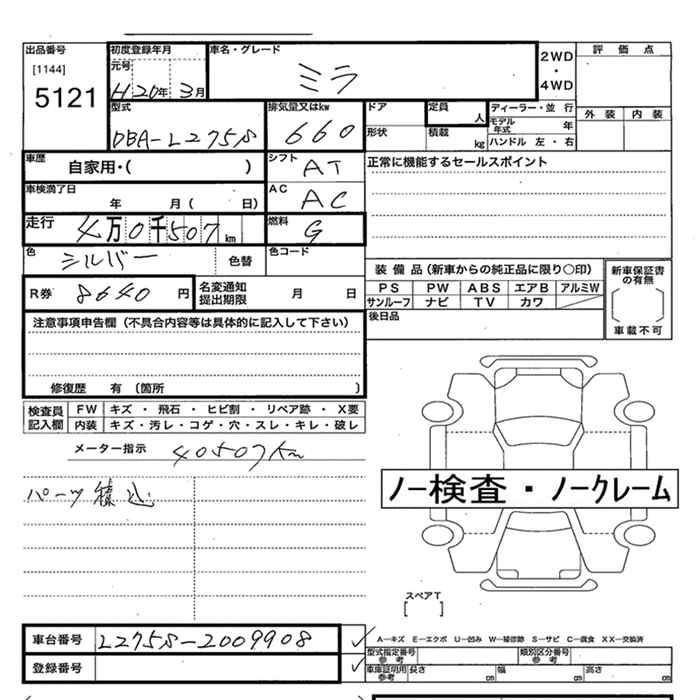 出品番号
[1144]
5121
初度登録年月
元号
H20年 3月
車名・グレード
ミラ
2WD
・
4WD
評 価 点
外 装 内 装
型式
DBA-L275S
排気量又はkw
660
ドア
形状
定員
人
積載
kg
ディーラー・並 行
モデル年式 年
ハンドル 左・右
車歴
自家用・( )
シフト
AT
正常に機能するセールスポイント
車検満了日
年 月( 日)
AC
AC
走行
4万0千507km
燃料
G
色
シルバー
色替
色コード
R券 8640 円
名変通知
提出期限
月 日
装 備 品 (新車からの純正品に限り○印)
PS PW ABS エアB アルミW
サンルーフ ナビ TV カワ
新車保証書
の有無
車載不可
後日品
注意事項申告欄(不具合内容等は具体的に記入して下さい)
修復歴 有 (箇所 )
検査員
記入欄
FW キズ ・ 飛石 ・ ヒビ割 ・ リペア跡 ・ X要
内装 キズ・汚レ・コゲ・穴・スレ・キレ・破レ
メーター指示 40507km
パーツ積込
ノー検査・ノークレーム
スペアT
[ ]
車台番号 L275S-2009908
登録番号
A―キズ E―エクボ U―凹み W―補修跡 S―サビ C―腐食 XX―交換済
型式指定番号
参 考
類別区分番号
参 考
車庫証明用
参考
長さ cm 幅 cm 高さ cm